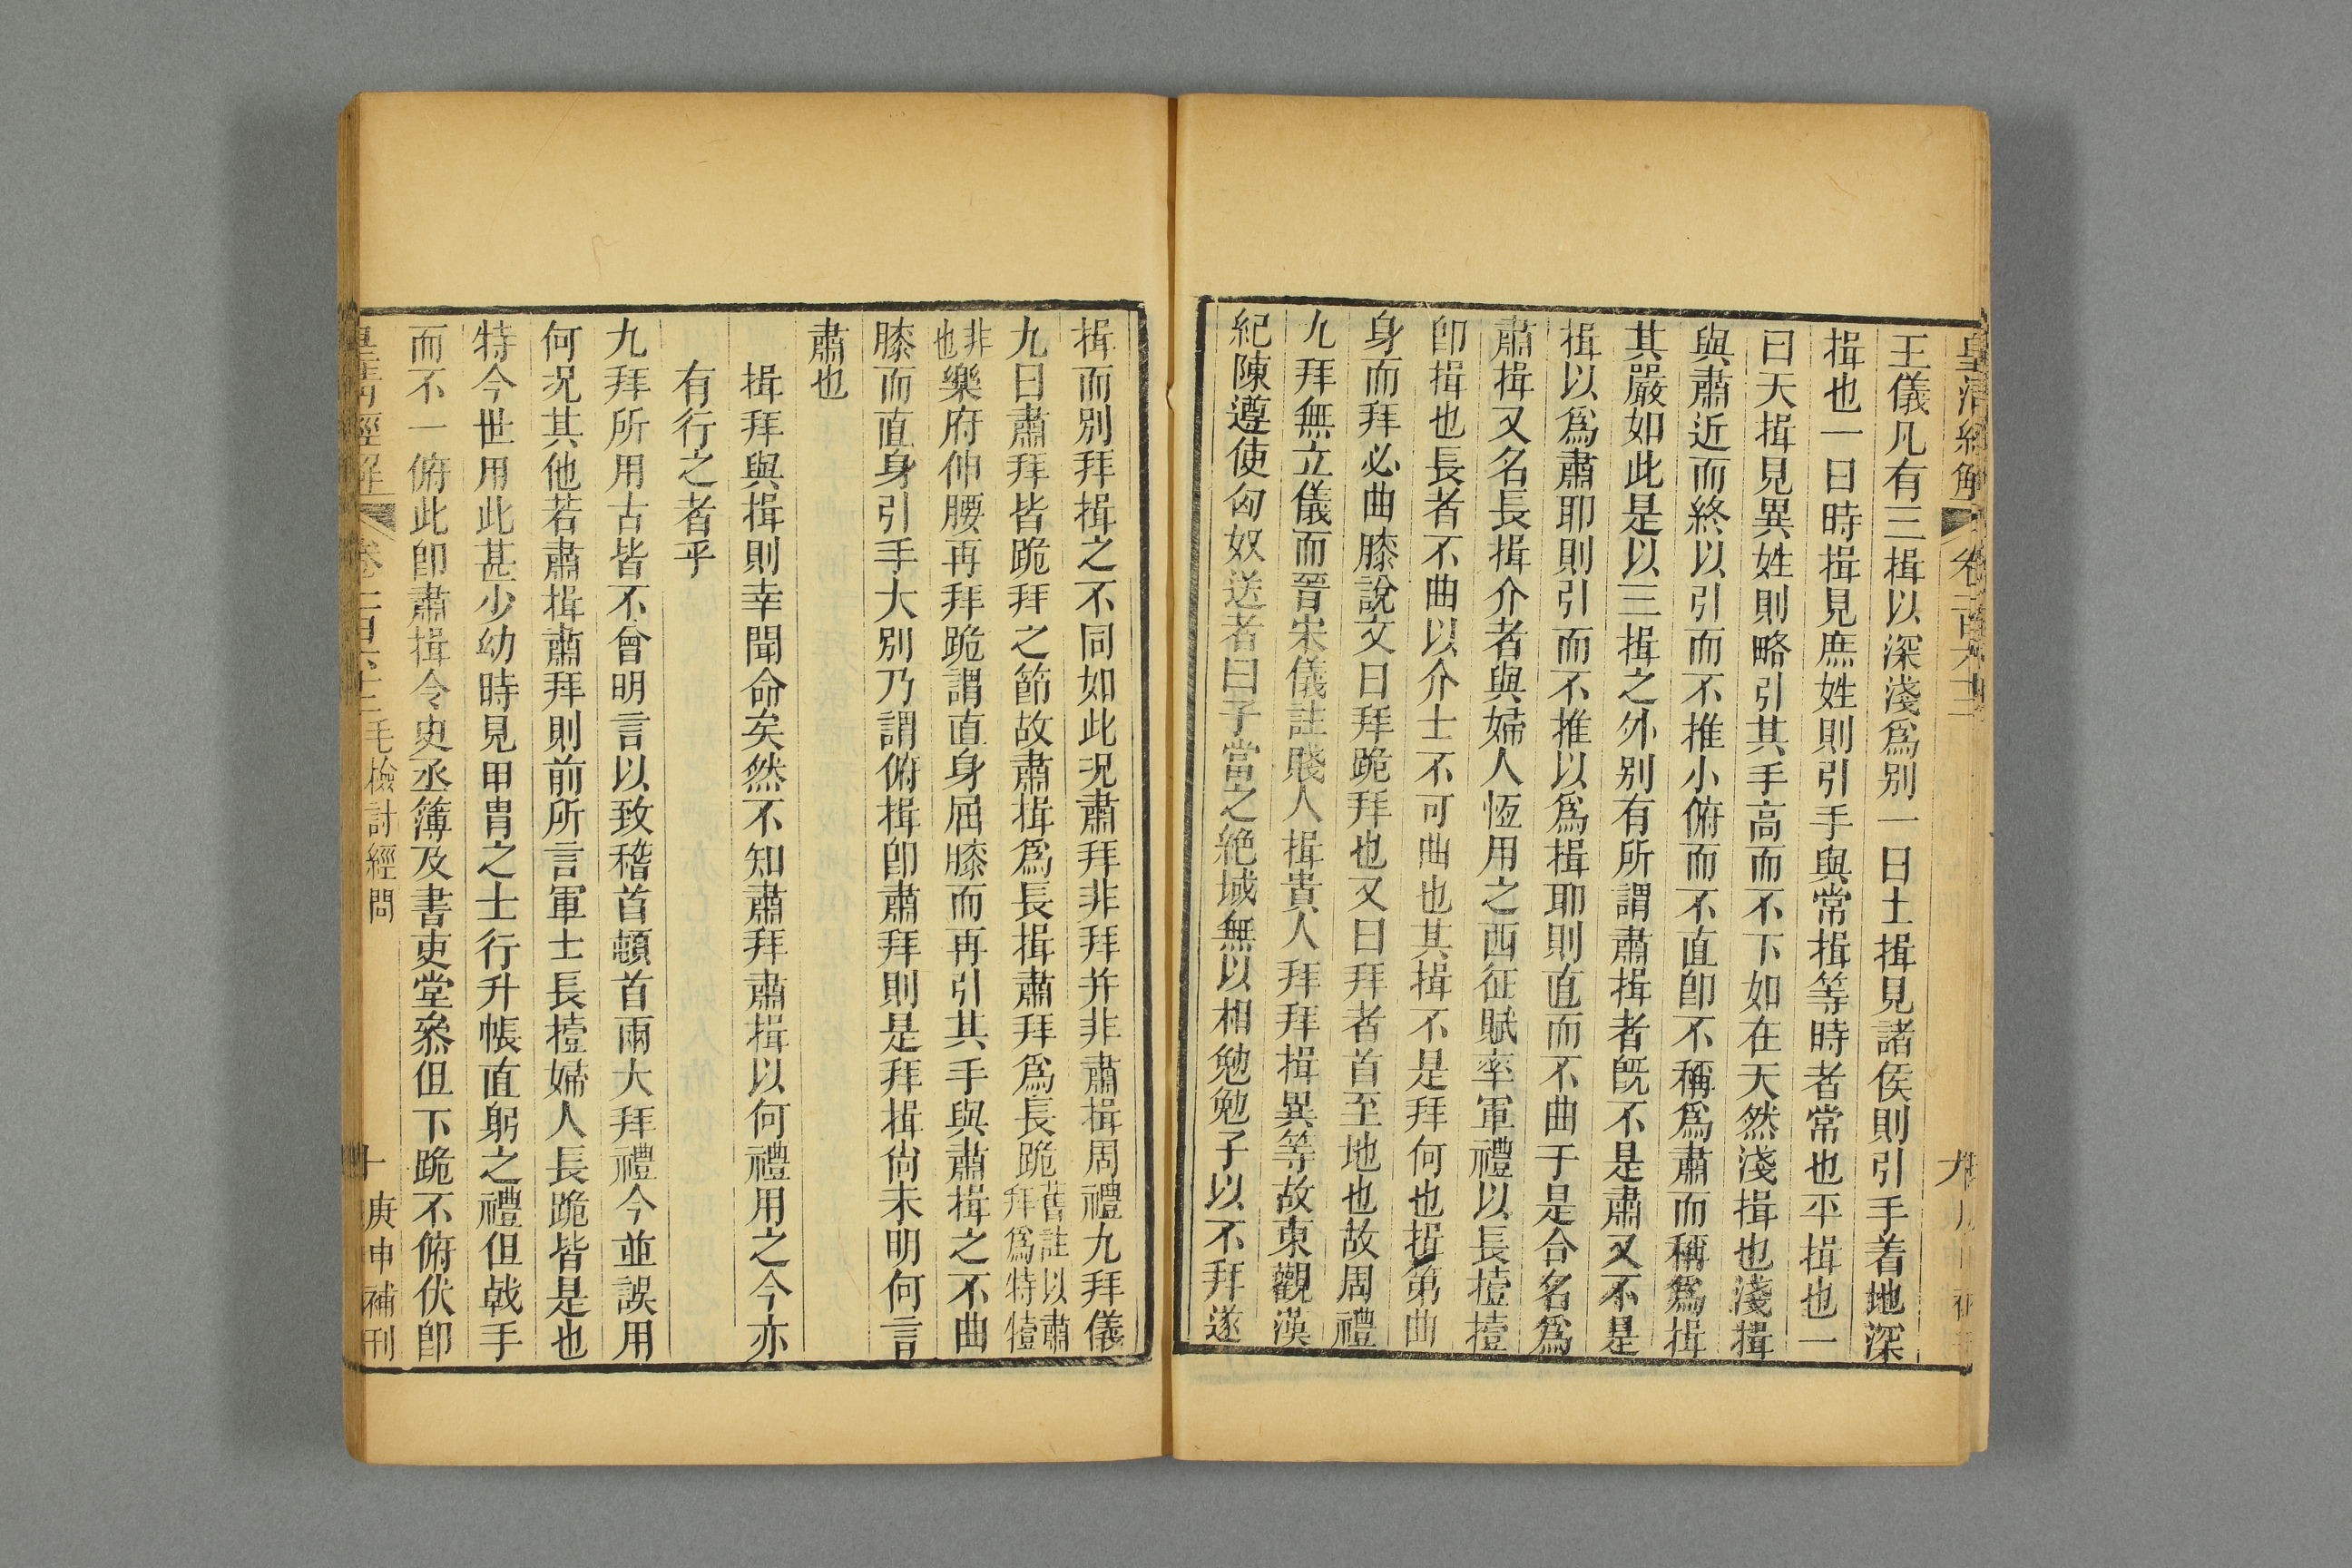 皇清經解
王儀凡有三揖以深淺爲別一曰土揖見諸侯則引手着地深
揖也一曰時揖見庶姓則引手與常揖等時者常也平揖也一
曰天揖見異姓則略引其手高而不下如在天然淺揖也淺揖
與肅近而終以引而不推小俯而不直卽不稱爲肅而稱爲揖
其嚴如此是以三揖之外別有所謂肅揖者旣不是肅又不是
揖以爲肅耶則引而不推以爲揖耶則直而不曲于是合名爲
肅揖又名長揖介者與婦人恆用之西征賦率軍禮以長撎撎
卽揖也長者不曲以介士不可曲也其揖不是拜何也揖第曲
身而拜必曲膝說文曰拜跪拜也又曰拜者首至地也故周禮
九拜無立儀而晉宋儀註賤人揖貴人拜拜揖異等故東觀漢
紀陳遵使匈奴送者曰子當之絶域無以相勉勉子以不拜遂
揖而別拜揖之不同如此况肅拜非拜并非肅揖周禮九拜儀
九曰肅拜皆跪拜之節故肅揖爲長揖肅拜爲長跪舊註以肅拜爲特撎
非也樂府伸腰再拜跪謂直身屈膝而再引其手與肅揖之不曲
膝而直身引手大別乃謂俯揖卽肅拜則是拜揖尙未明何言
肅也
揖拜與揖則幸聞命矣然不知肅拜肅揖以何禮用之今亦
有行之者乎
九拜所用古皆不曾明言以致稽首頓首兩大拜禮今並誤用
何况其他若肅揖肅拜則前所言軍士長撎婦人長跪皆是也
特今世用此甚少幼時見甲冑之士行升帳直躬之禮但戟手
而不一俯此卽肅揖令史丞簿及書吏堂叅但下跪不俯伏卽
毛檢討經問
十
庚申補刊